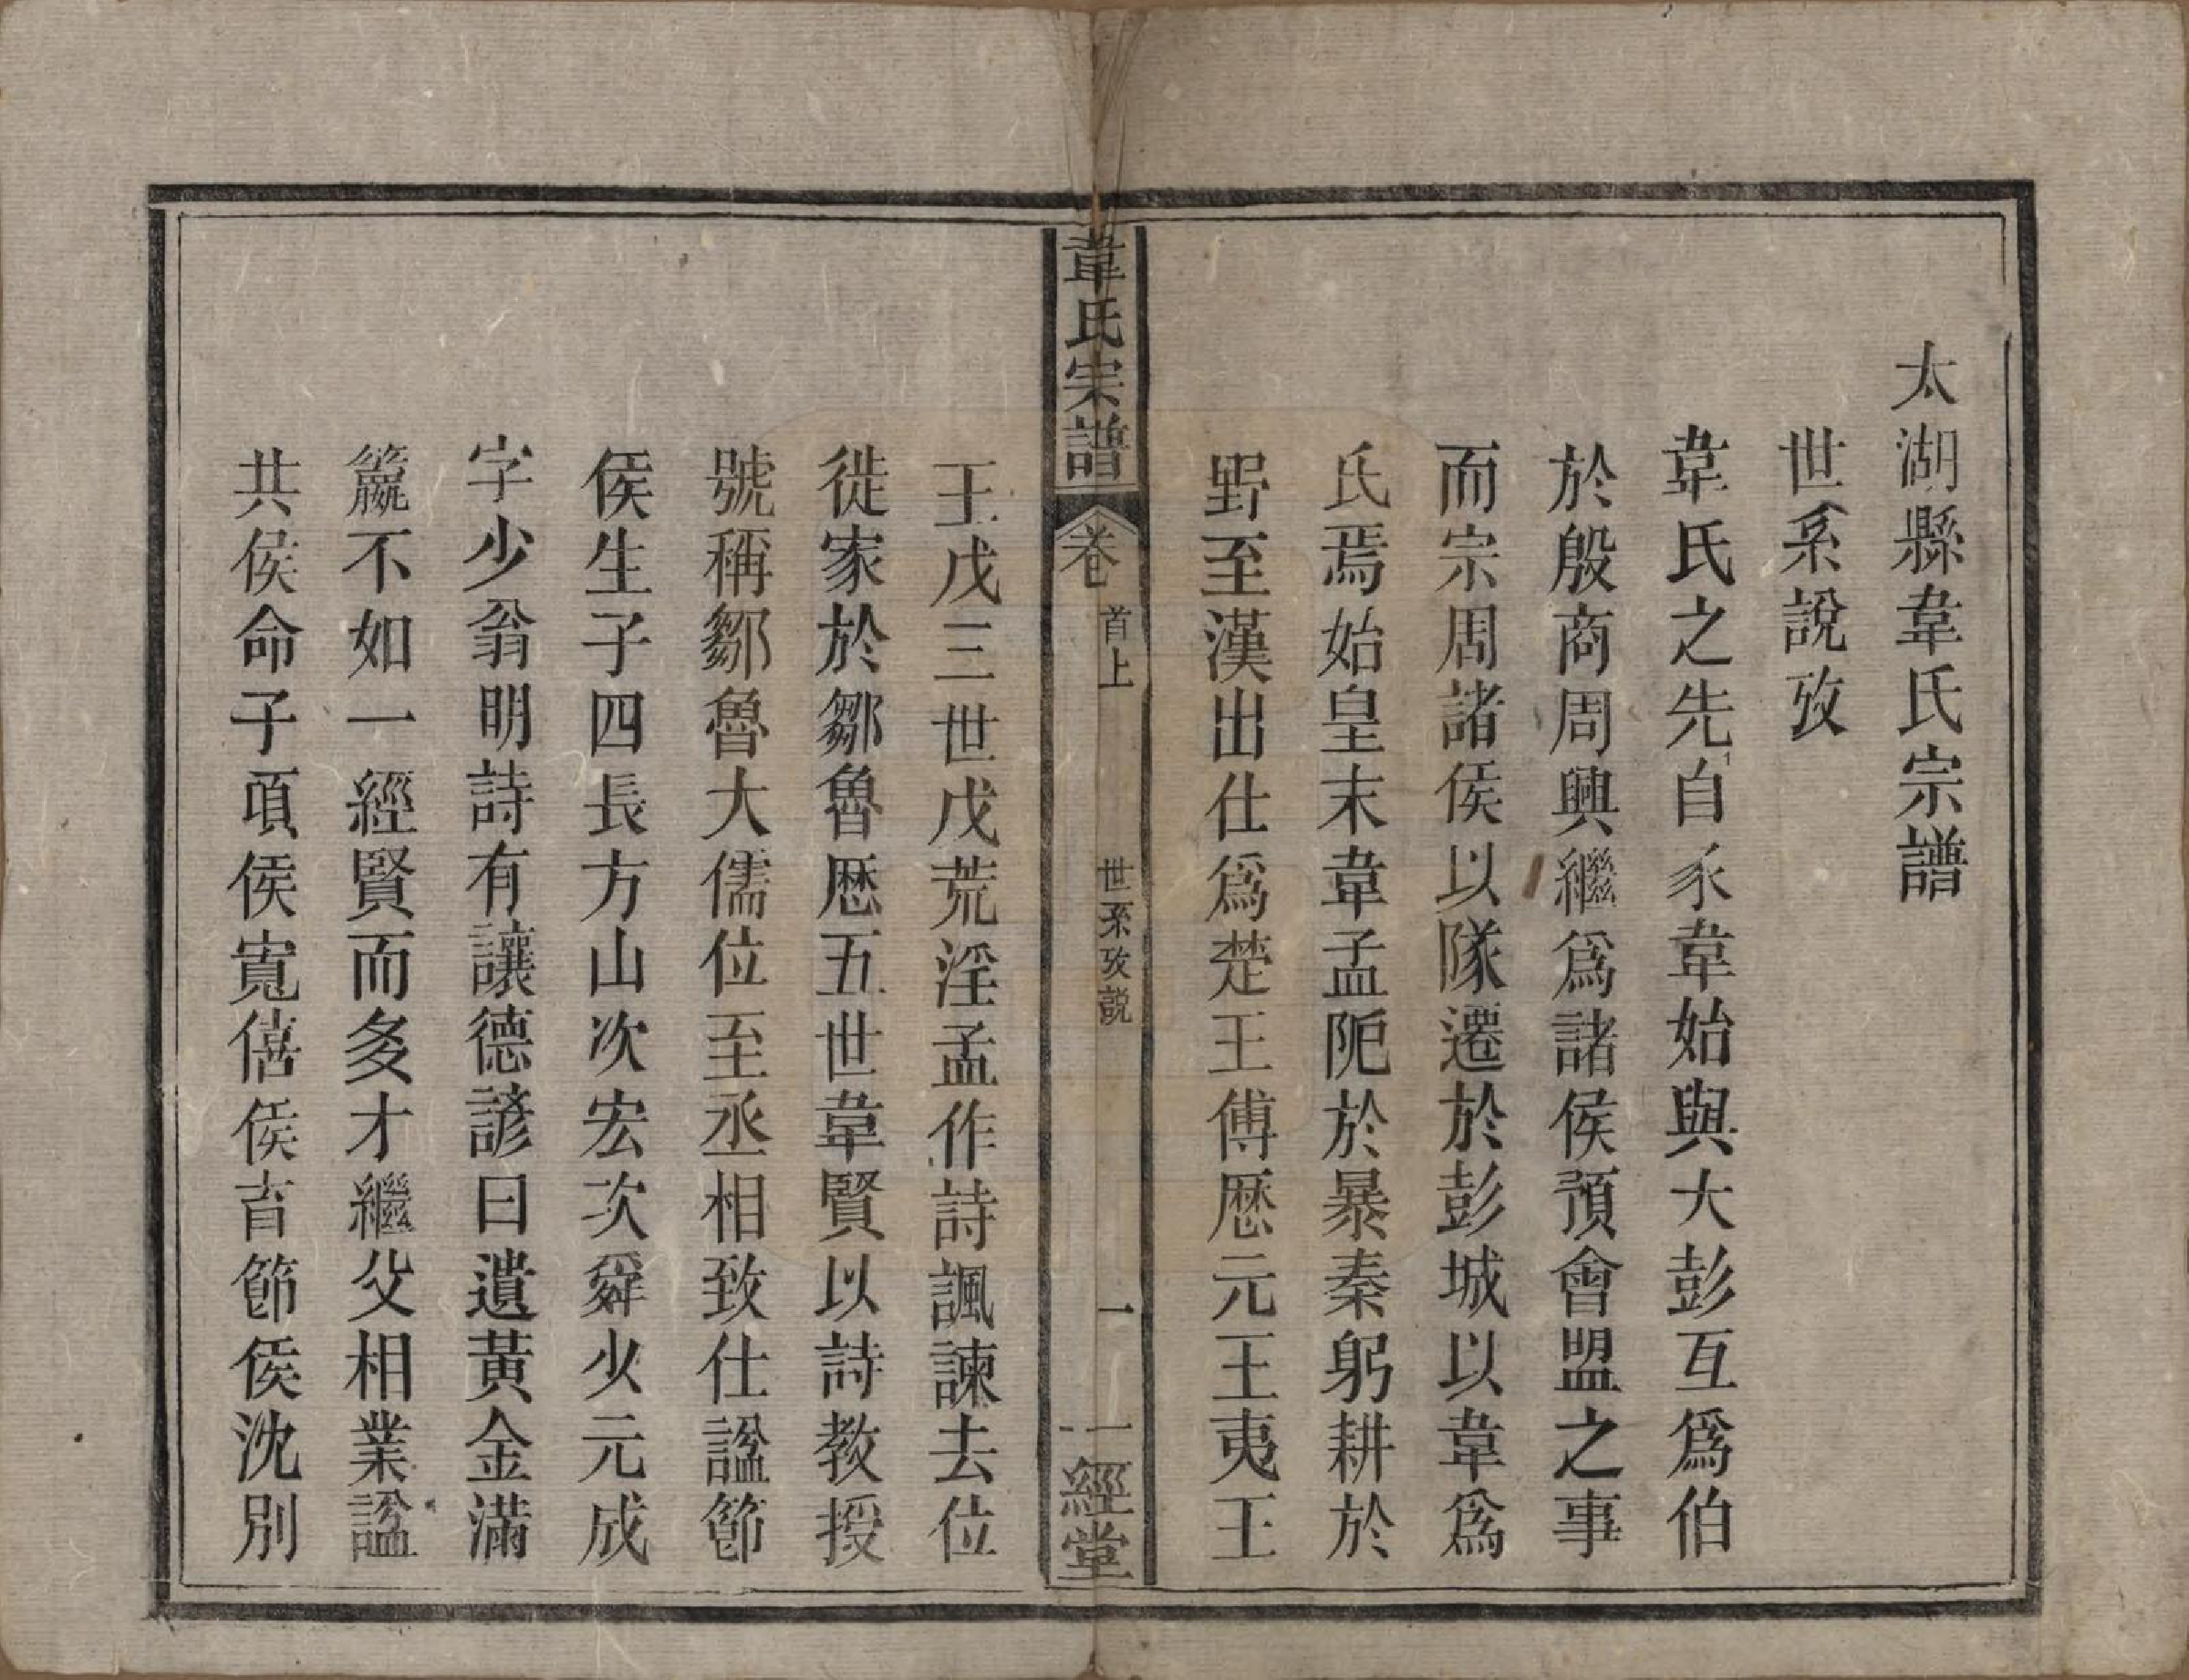 太湖縣韋氏宗譜
世系說攷
韋氏之先自豕韋始與大彭互爲伯
於殷商周興繼爲諸侯預會盟之事
而宗周諸侯以隊遷於彭城以韋爲
氏焉始皇末韋孟阨於暴秦躬耕於
野至漢出仕爲楚王傅歷元王夷王
韋氏宗譜
卷
首上
世系攷説
一
一經堂
王戊三世戊荒淫孟作詩諷諫去位
徙家於鄒魯歷五世韋賢以詩教授
號稱鄒魯大儒位至丞相致仕諡節
侯生子四長方山次宏次舜少元成
字少翁明詩有讓德諺曰遺黃金滿
籯不如一經賢而多才繼父相業諡
共侯命子頃侯寬僖侯育節侯沈別